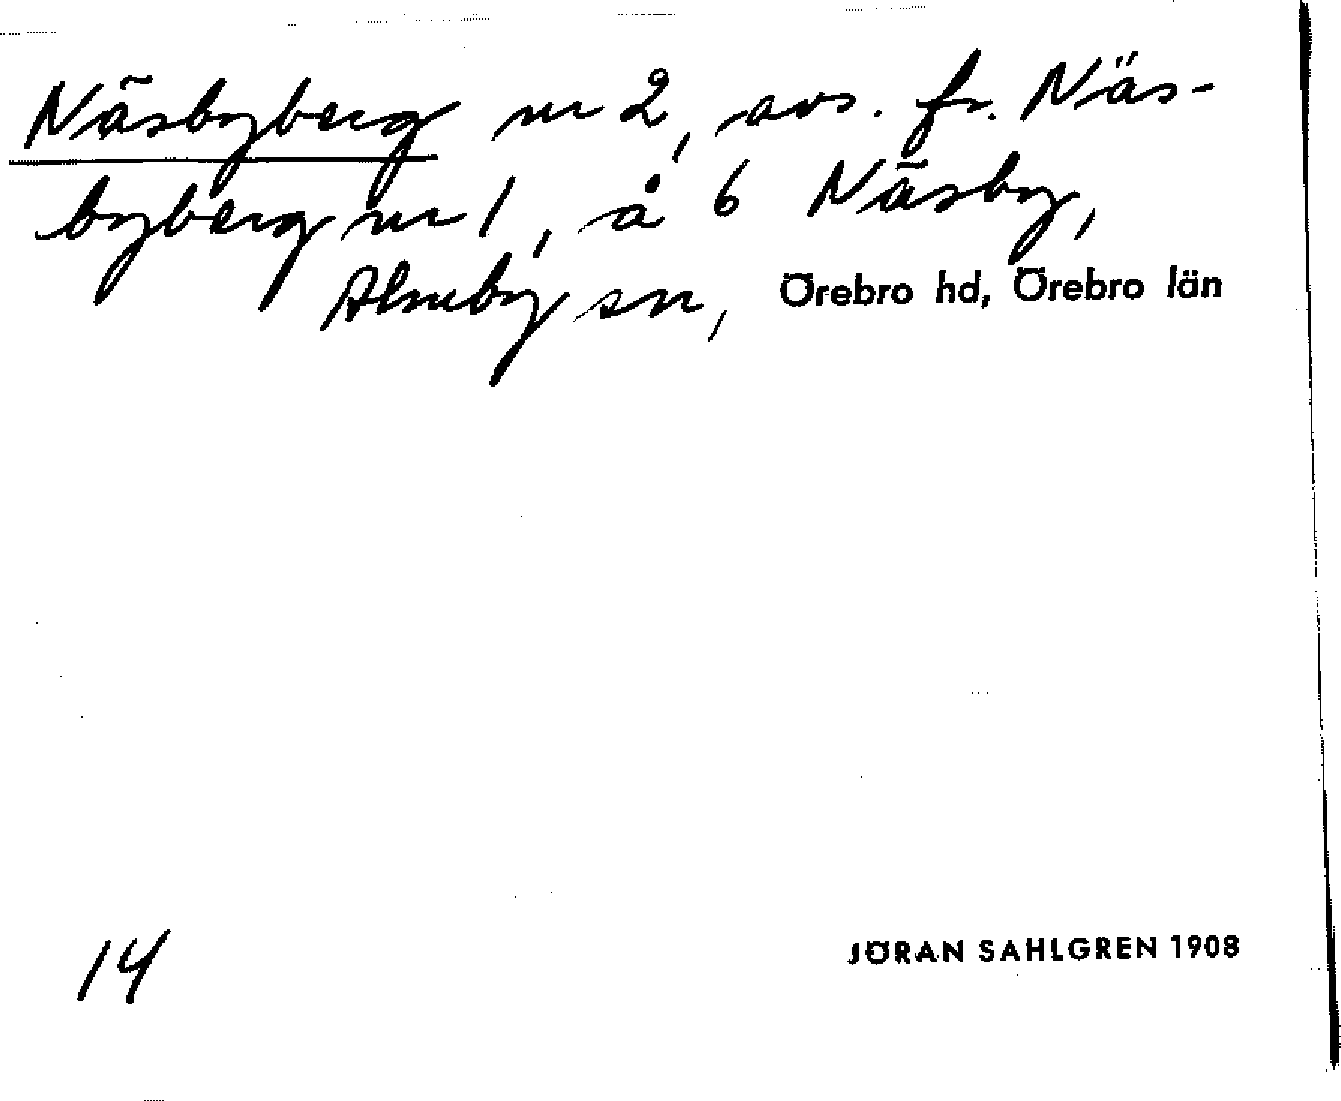 Näsbyberg nr 2, avs. fr. Näs-
byberg nr 1, å 6 Näsby,
Almby sn, Örebro hd, Örebro län
14
JÖRAN SAHLGREN 1908